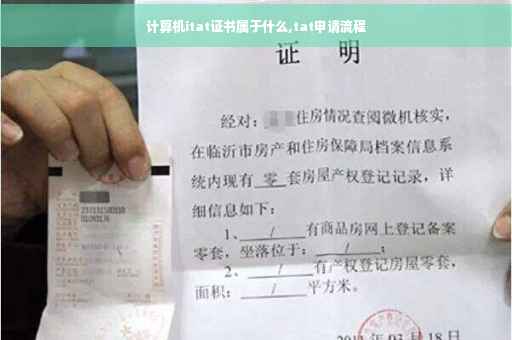 计算机itat证书属于什么,tat申请流程
证 明
经对: 住房情况查阅微机核实,
在临沂市房产和住房保障局档案信息系
统内现有 零 套房屋产权登记记录,详
细信息如下:
1、 / 有商品房网上登记备案
零套,坐落位于: / ;
2、 / 有产权登记房屋零套,
面积: / 平方米。